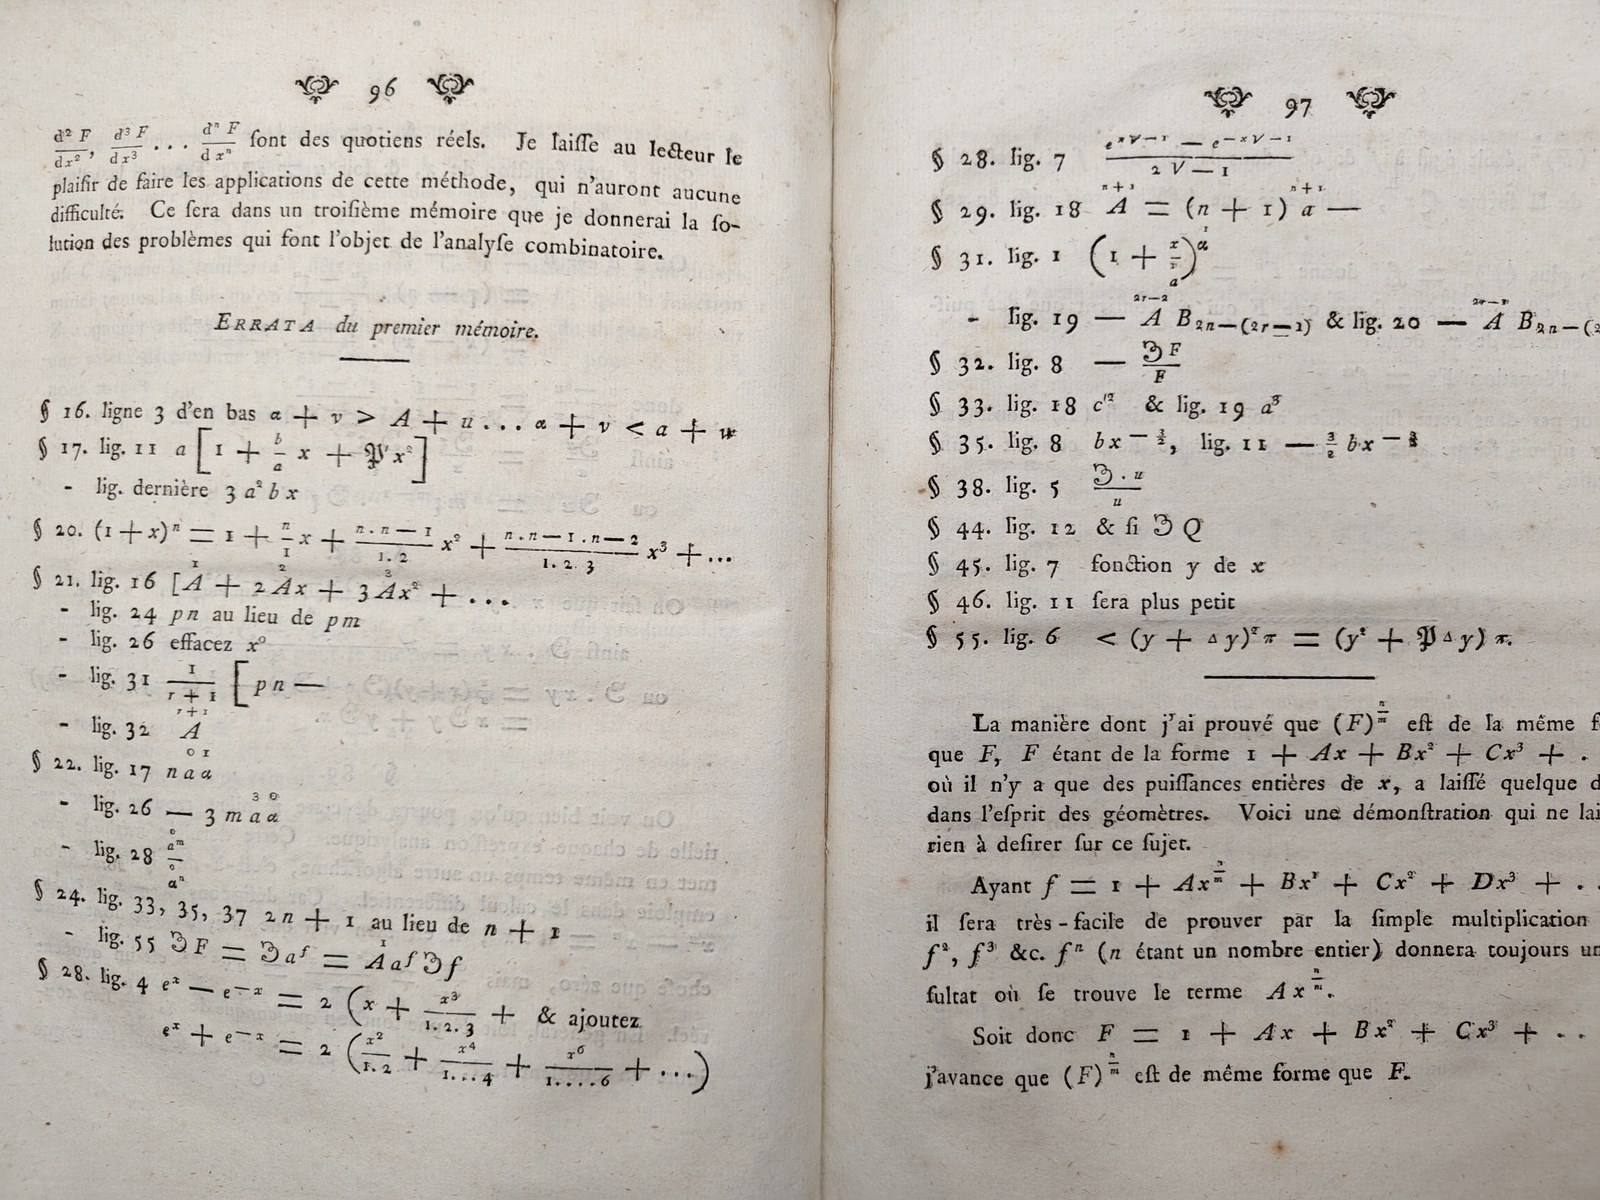 96
d² F/dx², d³ F/dx³ ... dⁿ F/d xⁿ ſont des quotiens réels. Je laiſſe au lecteur le
plaiſir de faire les applications de cette méthode, qui n'auront aucune
difficulté. Ce ſera dans un troiſième mémoire que je donnerai la ſo-
lution des problèmes qui font l'objet de l'analyſe combinatoire.
ERRATA du premier mémoire.
§ 16. ligne 3 d'en bas α + v > A + u ... α + v < a + u
§ 17. lig. 11 a [1 + b/a x + 𝔓x²]
- lig. dernière 3 a² b x
§ 20. (1 + x)ⁿ = 1 + n/1 x + n . n − 1/1. 2 x² + n . n − 1 . n − 2/1. 2. 3 x³ + ...
§ 21. lig. 16 [A¹ + 2 A²x + 3 A³x² + ...
- lig. 24 pn au lieu de pm
- lig. 26 effacez x⁰
- lig. 31 1/r + 1 [pn —
- lig. 32 r+1 A
§ 22. lig. 17 n a⁰ a¹
- lig. 26 — 3 m a³ a⁰
- lig. 28
§ 24. lig. 33, 35, 37 2n + 1 au lieu de n + 1
- lig. 55 𝔇F = 𝔇aᶠ = A¹ aᶠ 𝔇f
§ 28. lig. 4 eˣ — e⁻ˣ = 2 (x + x³/1. 2. 3 + & ajoutez
eˣ + e⁻ˣ = 2 (x²/1. 2 + x⁴/1...4 + x⁶/1....6 + ...)
97
§ 28. lig. 7 e^x√−1 — e^−x√−1/2 √−1
§ 29. lig. 18 n+1 A = (n + 1) n+1 a —
§ 31. lig. 1 (1 + x/r)^α
- lig. 19 — 2r−2 A B₂ₙ₋₍₂ᵣ₋₁₎ & lig. 20 — A B
§ 32. lig. 8 — 𝔇F/F
§ 33. lig. 18 c'² & lig. 19 a³
§ 35. lig. 8 bx − 3/2, lig. 11 — 3/2 bx −
§ 38. lig. 5 𝔇. u/u
§ 44. lig. 12 & ſi 𝔇 Q
§ 45. lig. 7 fonction y de x
§ 46. lig. 11 ſera plus petit
§ 55. lig. 6 < (y + Δy)² π = (y² + 𝔓 Δy) π.
La manière dont j'ai prouvé que (F)^n/m eſt de la même f
que F, F étant de la forme 1 + Ax + Bx² + Cx³ + .
où il n'y a que des puiſſances entières de x, a laiſſé quelque d
dans l'eſprit des géomètres. Voici une démonſtration qui ne lai
rien à deſirer ſur ce ſujet.
Ayant f = 1 + Ax^n/m + Bx¹ + Cx² + Dx³ + . .
il ſera très-facile de prouver par la ſimple multiplication
f², f³ &c. fⁿ (n étant un nombre entier) donnera toujours un
ſultat où ſe trouve le terme Ax^n/m.
Soit donc F = 1 + Ax + Bx² + Cx³ + . .
j'avance que (F)^n/m eſt de même forme que F.